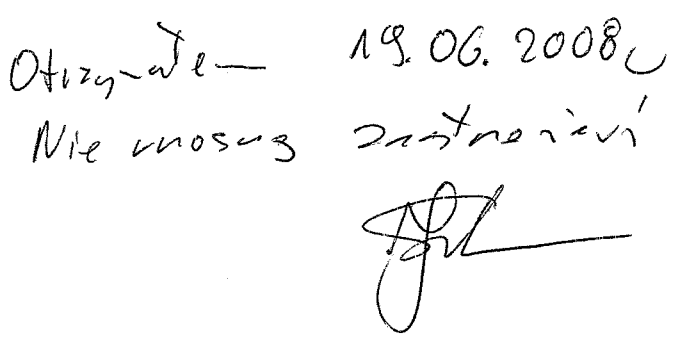 Otrzymałem 19.06.2008r
Nie wnoszę zastrzeżeń